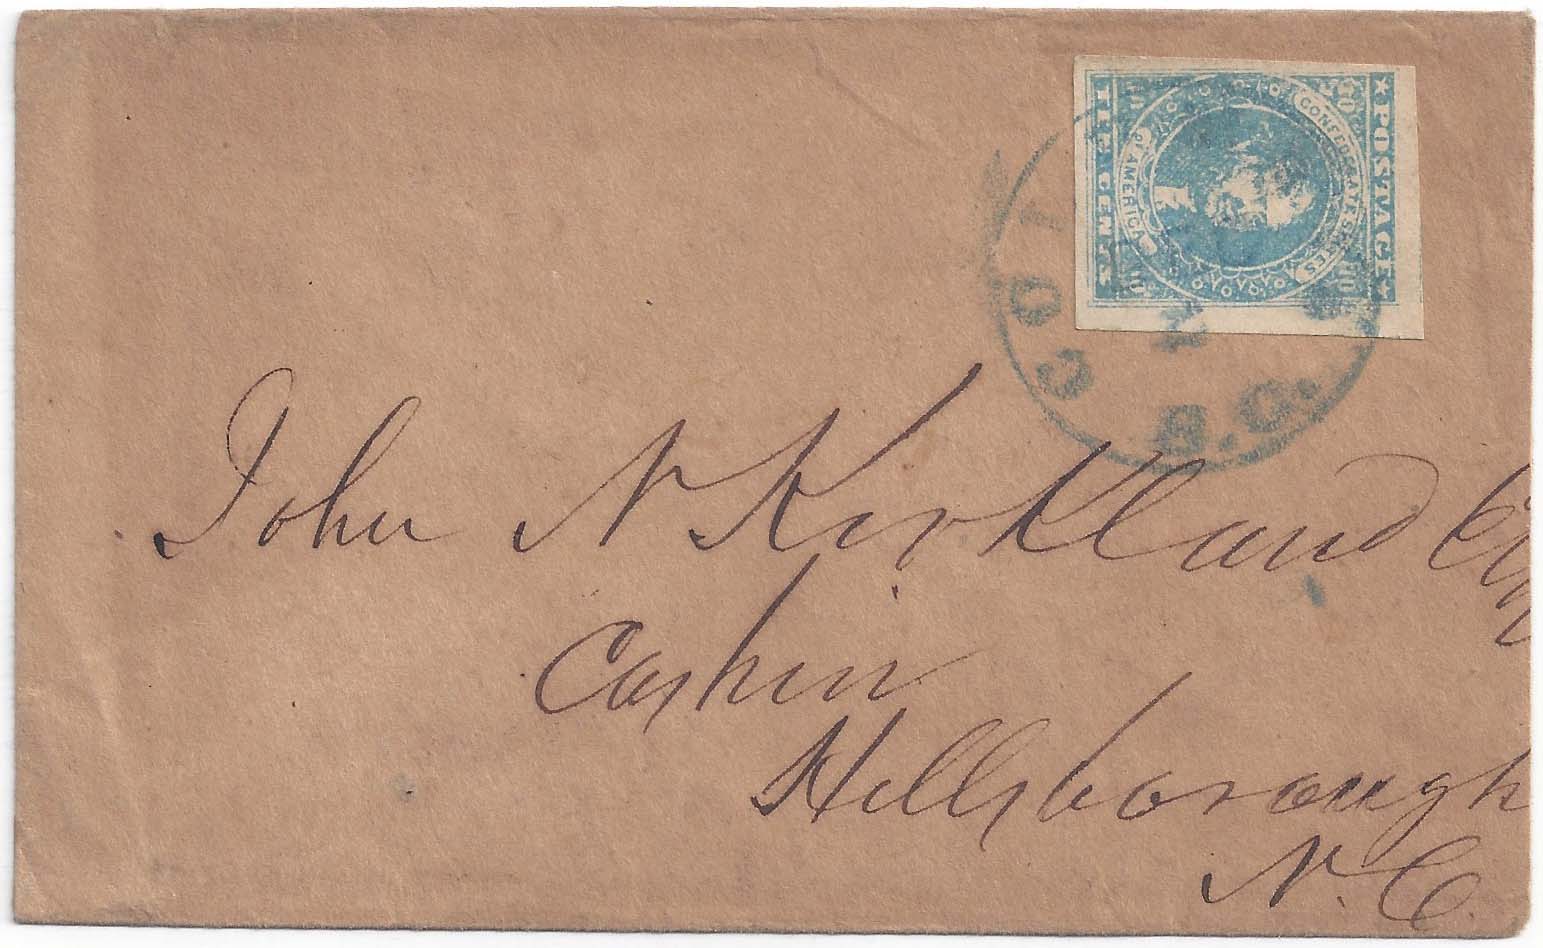 POSTAGE
CONFEDERATE STATES
OF AMERICA
TEN CENTS
COL
S.C.
John N Kirkland Esq
Cashier
Hillsborough
N.C.